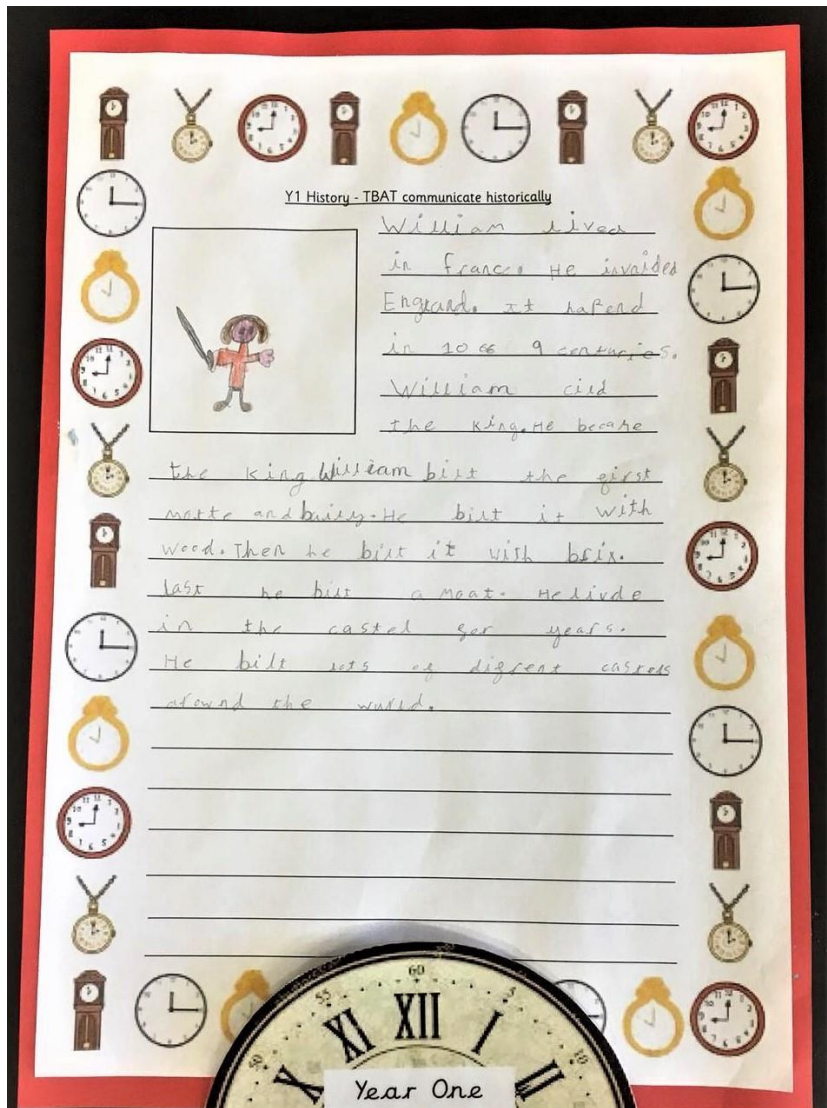 Y1 History - TBAT communicate historically
William lived
in france. He invaided
England. It hapend
in 1066 9 centuries.
William cild
the King. He became
the King. William bilt the first
motte and baily. He bilt it with
wood. Then he bilt it with brix.
last he bilt a moat. He livde
in the castel for years.
He bilt lots of difrent castels
arownd the wurld.
50 55 60 5 10
X XI XII I II
Year One